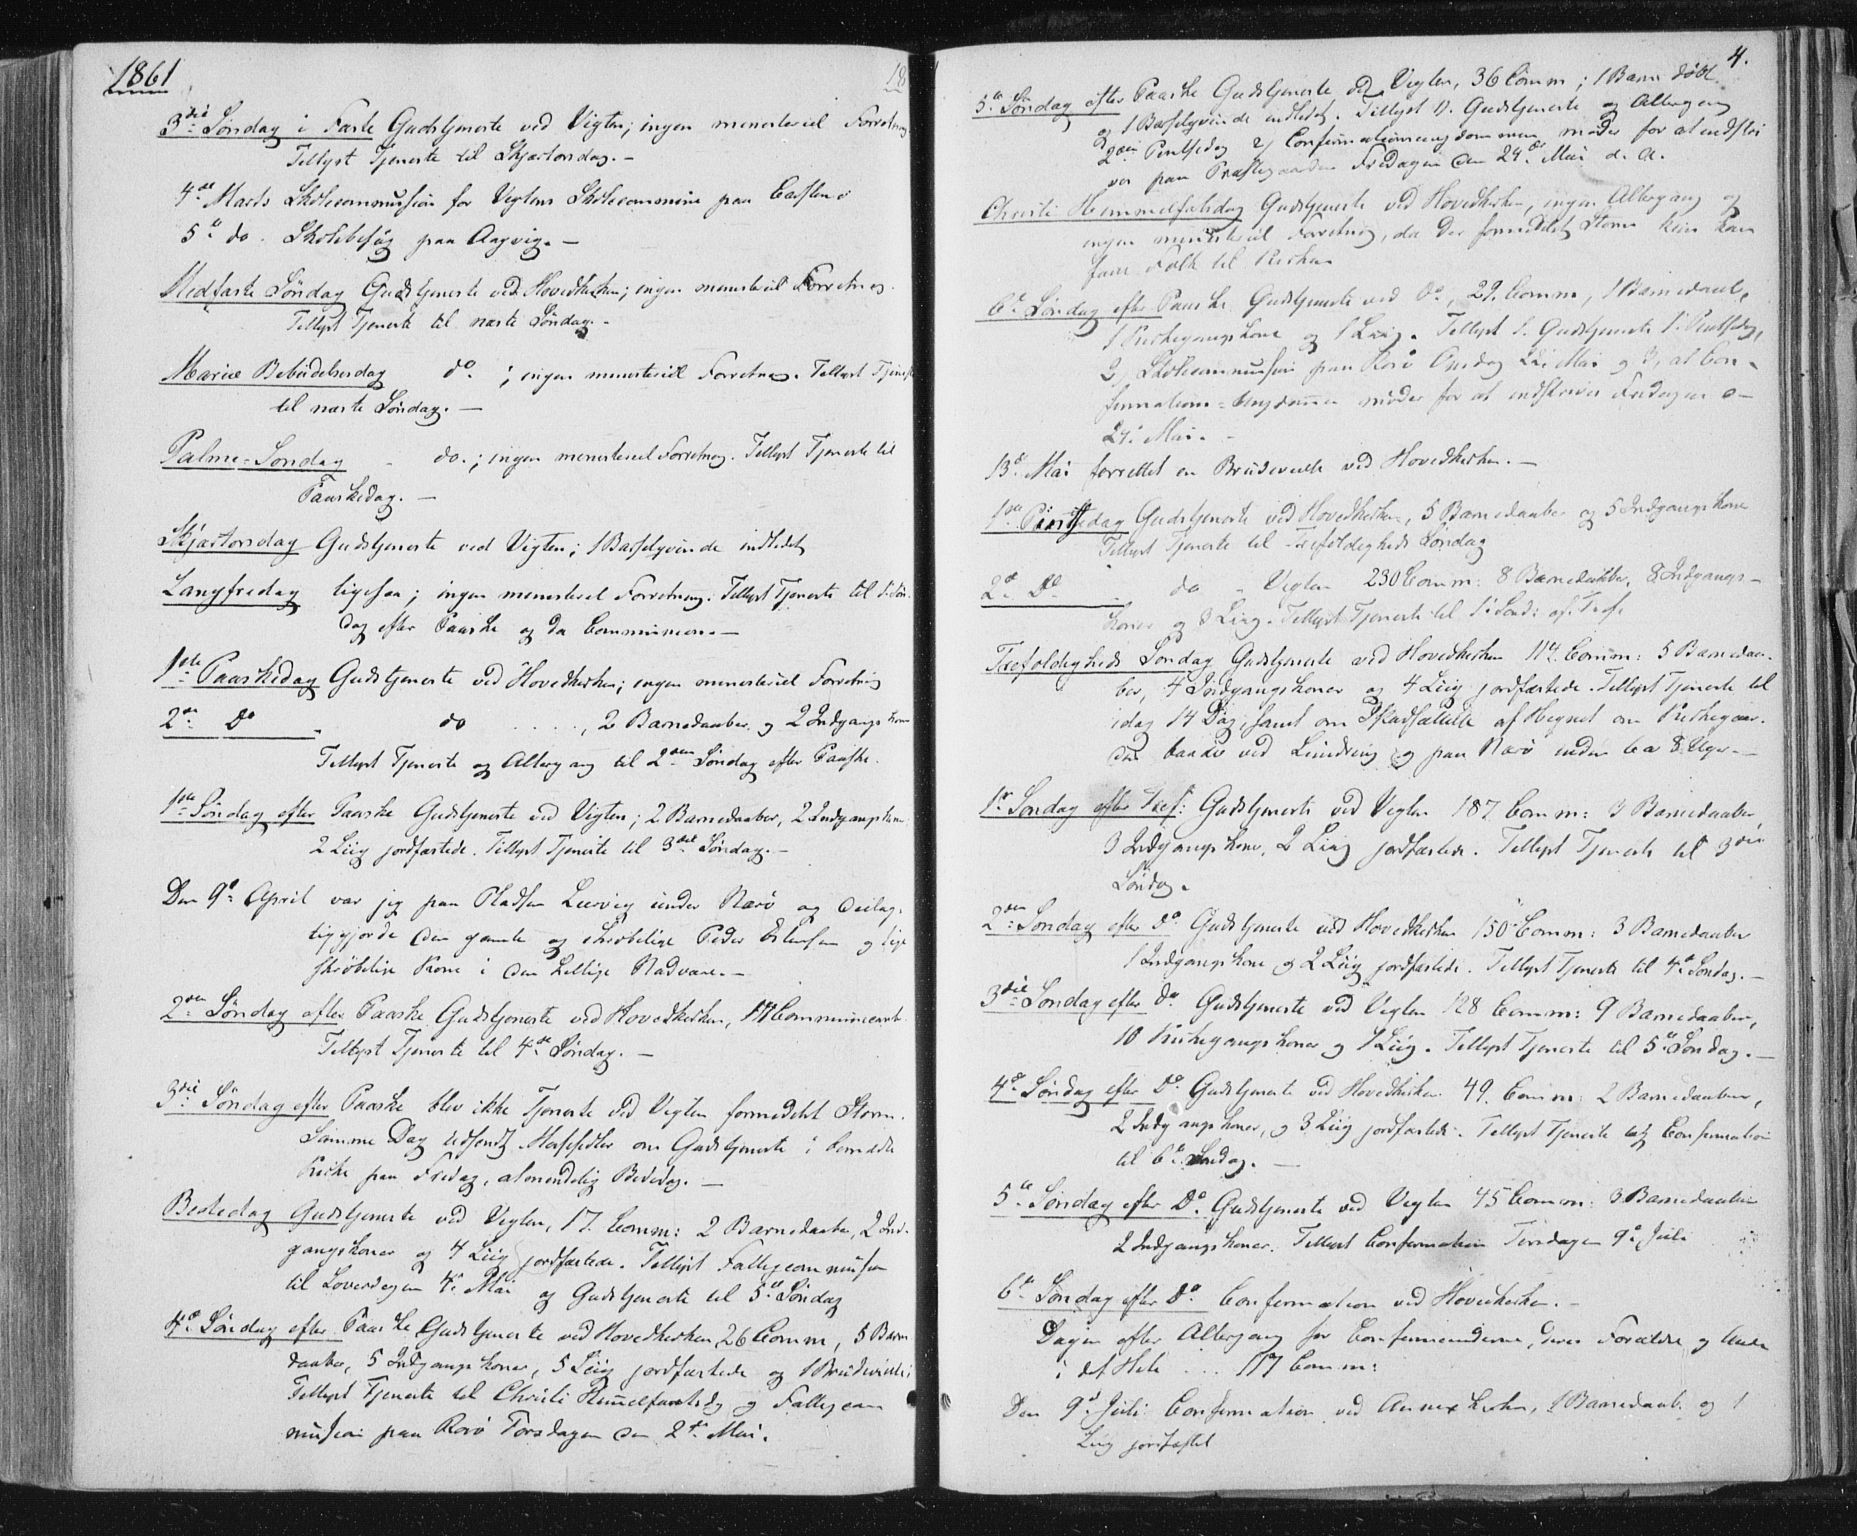 1861
3die Søndag i Faste Gudstjeneste ved Vigten; ingen ministeriel Forretning
Tillyst Tjeneste til Skjærtorsdag. —
4de Marts Skolecommission for Vigtens Skolecommune paa
5te do. Skolebesøg paa Aagvig. —
Midfaste Søndag Gudstjeneste ved Hovedkirken; ingen ministeriel Forretning.
Tillyst Tjeneste til næste Søndag. —
Mariæ Bebudelsesdag do. ; ingen ministeriel Forretning. Tillyst Tjeneste
til næste Søndag. —
Palme-Søndag - do. ; ingen ministeriel Forretning. Tillyst Tjeneste til
Paaskedag. —
Skjærtorsdag Gudstjeneste ved Vigten; 1 Barselqvinde indledet
Langfredag ligesaa; ingen ministeriel Forretning. Tillyst Tjeneste til 1ste Søn-
dag efter Paaske og da Communion. —
1ste Paaskedag Gudstjeneste ved Hovedkirken; ingen ministeriel Forretning
2den Do do ....., 2 Barnedaaber og 2 Indgangskoner
Tillyst Tjeneste og Altergang til 2den Søndag efter Paaske.
1ste Søndag efter Paaske Gudstjeneste ved Vigten; 2 Barnedaaber, 2 Indgangskoner
2 Liig jordfæstede. Tillyst Tjeneste til 3die Søndag. —
Den 9de April var jeg paa Pladsen Leirvig under Nærø og deelag-
tiggjorde den gamle og skrøbelige Peder Ellefsen og lige
skrøbelige Kone i den Hellige Nadvere. —
2den Søndag efter Paaske Gudstjeneste ved Hovedkirken, Communicant.
Tillyst Tjeneste til 4de Søndag. —
3die Søndag efter Paaske blev ikke Tjeneste ved Vigten formedelst Storm.
Samme Dag udsendt Massedler om Gudstjeneste i bemeldte
Kirke paa Fredag, almindelig Bededag. —
Bededag Gudstjeneste ved Vigten, 17 Comm: 2 Barnedaaber, 2 Ind-
gangskoner og 4 Liig jordfæstede. Tillyst Fattigcommission
til Løverdagen 4de Mai og Gudstjeneste til 5te Søndag
4de Søndag efter Paaske Gudstjeneste ved Hovedkirken, 26 Comm, 5 Barne
daaber, 5 Indgangskoner, 5 Liig jordfæstede og 1 Brudevielse
Tillyst Tjeneste til Christi Himmelfartsdag og Fattigcom
mission paa Rørø Torsdagen den 2den Mai.
4.
5te Søndag efter Paaske Gudstjeneste ved Vigten, 36 Comm; 1 Barn døbt
og 1 Barselqvinde indledet. Tillyst 1) Gudstjeneste og Altergang
2den Pintsedag 2) Confirmationsungdommen møder for at indskri
ves paa Præstegaarden Fredagen den 24de Mai d. A.
Christi Himmelfartsdag Gudstjeneste ved Hovedkirken, ingen Altergang og
ingen ministeriel Forretning, da der formedelst Storm kun kom
faae Folk til Kirken
6te Søndag efter Paaske Gudstjeneste ved Do, 29 Comm, 1 Barnedaab,
1 Kirkegangskone og 1 Liig. Tillyst 1. Gudstjeneste 1ste Pintsedag,
2, Skolecommission paa Rørø Onsdag 22de Mai og 3, at Con-
firmations-Ungdommen møder for at indskrives Fredagen d
24de Mai. —
13de Mai forrettet en Brudevielse ved Hovedkirken. —
1ste Pintsedag Gudstjeneste ved Hovedkirken, 5 Barnedaaber og 5 Indgangskoner
Tillyst Tjeneste til Trefoldigheds Søndag
2den Do do Vigten 230 Comm: 8 Barnedaaber, 8 Indgangs-
koner og 3 Liig. Tillyst Tjeneste til 1ste Sønd: ef. Tref.
Trefoldigheds Søndag Gudstjeneste ved Hovedkirken 114 Comm: 5 Barnedaa-
ber, 4 Indgangskoner og 4 Liig jordfæstede. Tillyst Tjeneste til
idag 14 Dag, samt om Istandsættelse af Hegnet om Kirkegaar-
den baade ved Lundring og paa Nærø inden 6 a 8 Uger. —
1ste Søndag efter Tref: Gudstjeneste ved Vigten 187 Comm: 3 Barnedaaber,
3 Indgangskoner, 2 Liig jordfæstede. Tillyst Tjeneste til 3die
Søndag.
2den Søndag efter Do Gudstjeneste ved Hovedkirken 150 Comm: 3 Barnedaaber
1 Indgangskone og 2 Liig jordfæstede. Tillyst Tjeneste til 4de Søndag. —
3die Søndag efter Do Gudstjeneste ved Vigten 128 Comm: 9 Barnedaaber,
10 Kirkegangskoner og 1 Liig. Tillyst Tjeneste til 5te Søndag. —
4de Søndag efter Do. Gudstjeneste ved Hovedkirken 49. Comm: 2 Barnedaaber,
2 Indgangskoner, og 3 Liig jordfæstede. Tillyst Tjeneste og Confirmation
til 6te Søndag. —
5te Søndag efter Do. Gudstjeneste ved Vigten 45 Comm: 3 Barnedaaber
2 Indgangskoner. Tillyst Confirmation Tirsdagen 9de Juli
6te Søndag efter Do. Confirmation ved Hovedkirken. —
Dagen efter Altergang for Confirmanderne, deres Forældre og Andre
i det Hele ... 117 Comm:
Den 9de Juli Confirmation ved Annexkirken, 1 Barnedaab og 1
Liig jordfæstet